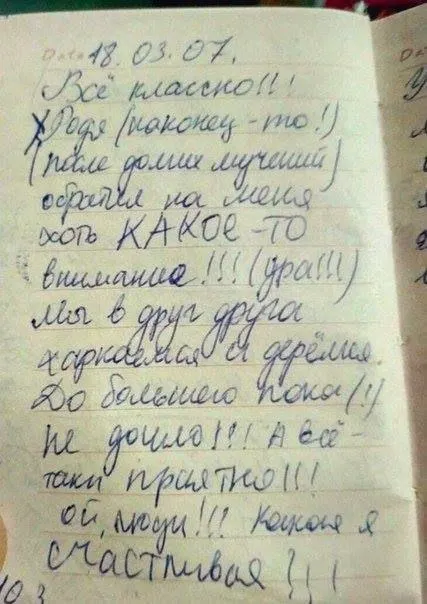 Data 18.03.07.
Всё классно!!!
Родя (наконец-то!)
(после долгих мучений)
обратил на меня
хоть КАКОЕ-ТО
внимание!!! (ура!!!)
Мы в друг друга
харкаемся и дерёмся.
До большего пока (!)
не дошло!!! А всё-
таки приятно!!!
ой, люди!!! Какая я
счастливая!!!